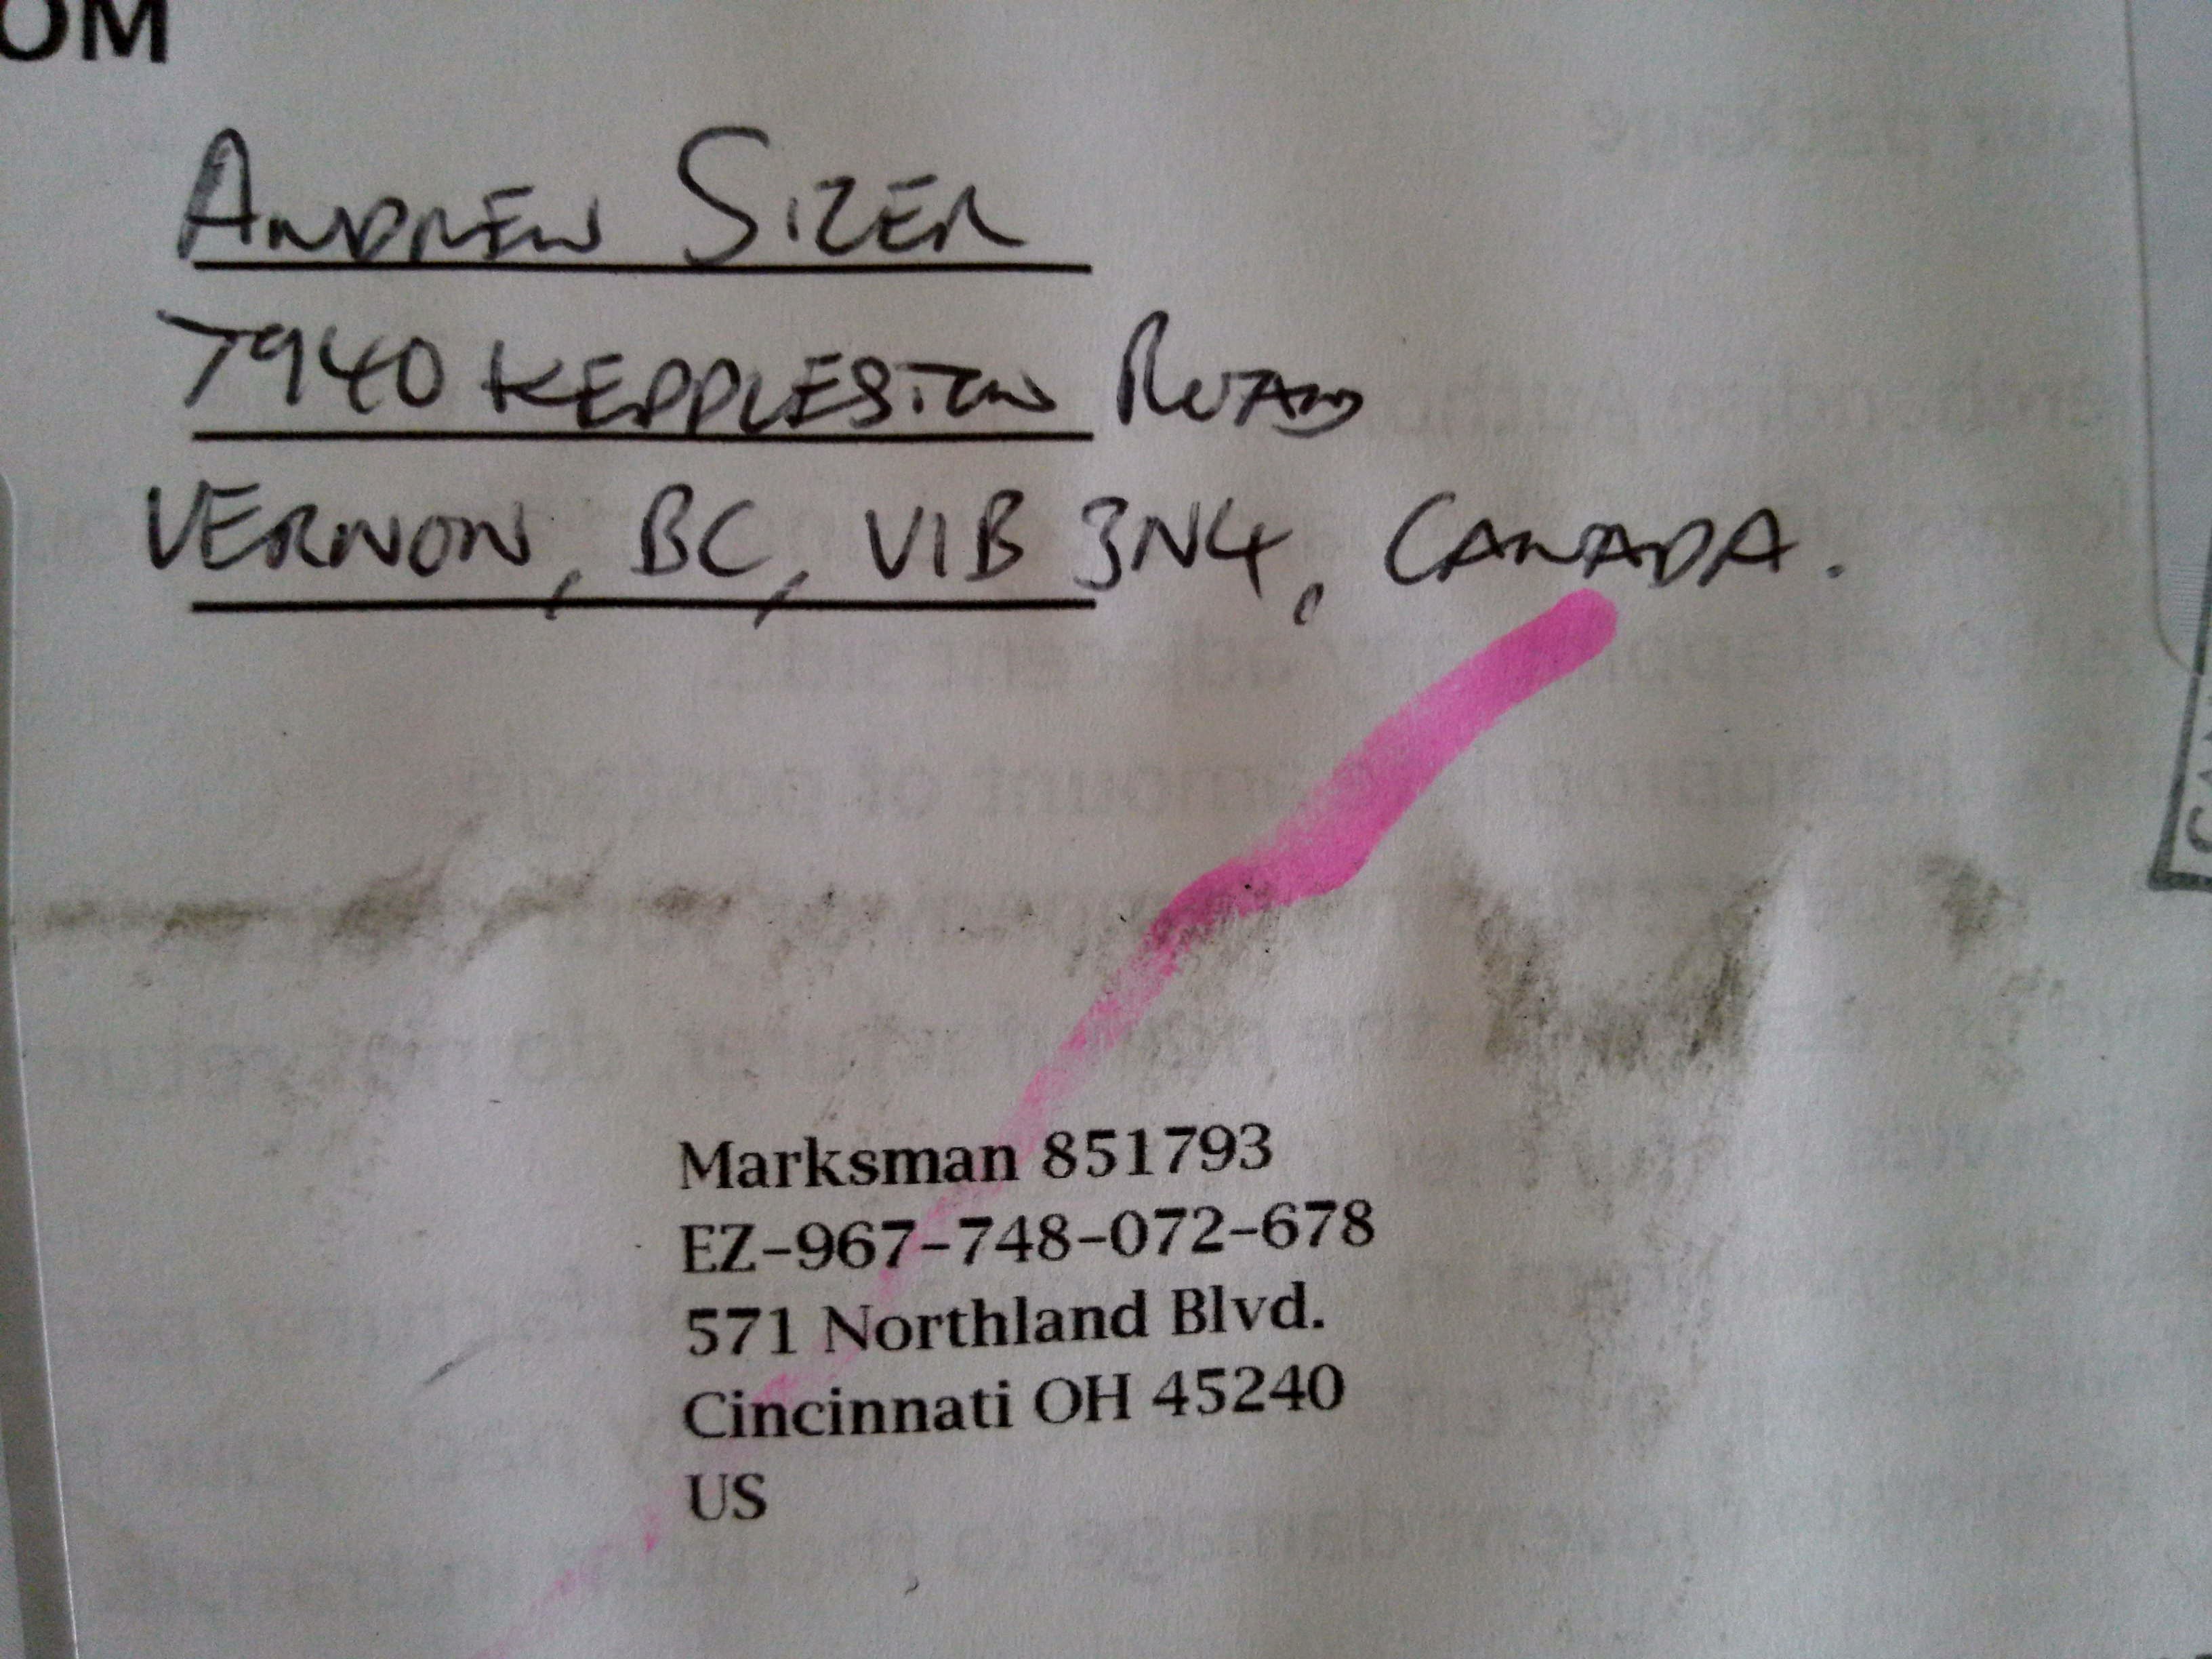 OM
ANDREW SIZER
7940 KEPPLESTON ROAD
VERNON, BC, V1B 3N4, CANADA.
Marksman 851793
EZ-967-748-072-678
571 Northland Blvd.
Cincinnati OH 45240
US